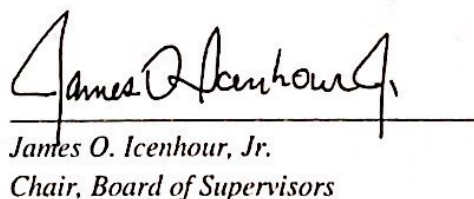 James O. Icenhour Jr.
James O. Icenhour, Jr.
Chair, Board of Supervisors